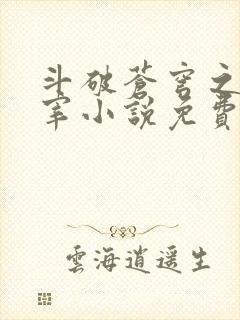 斗破蒼穹之
宰小說免費
雲海逍遥生